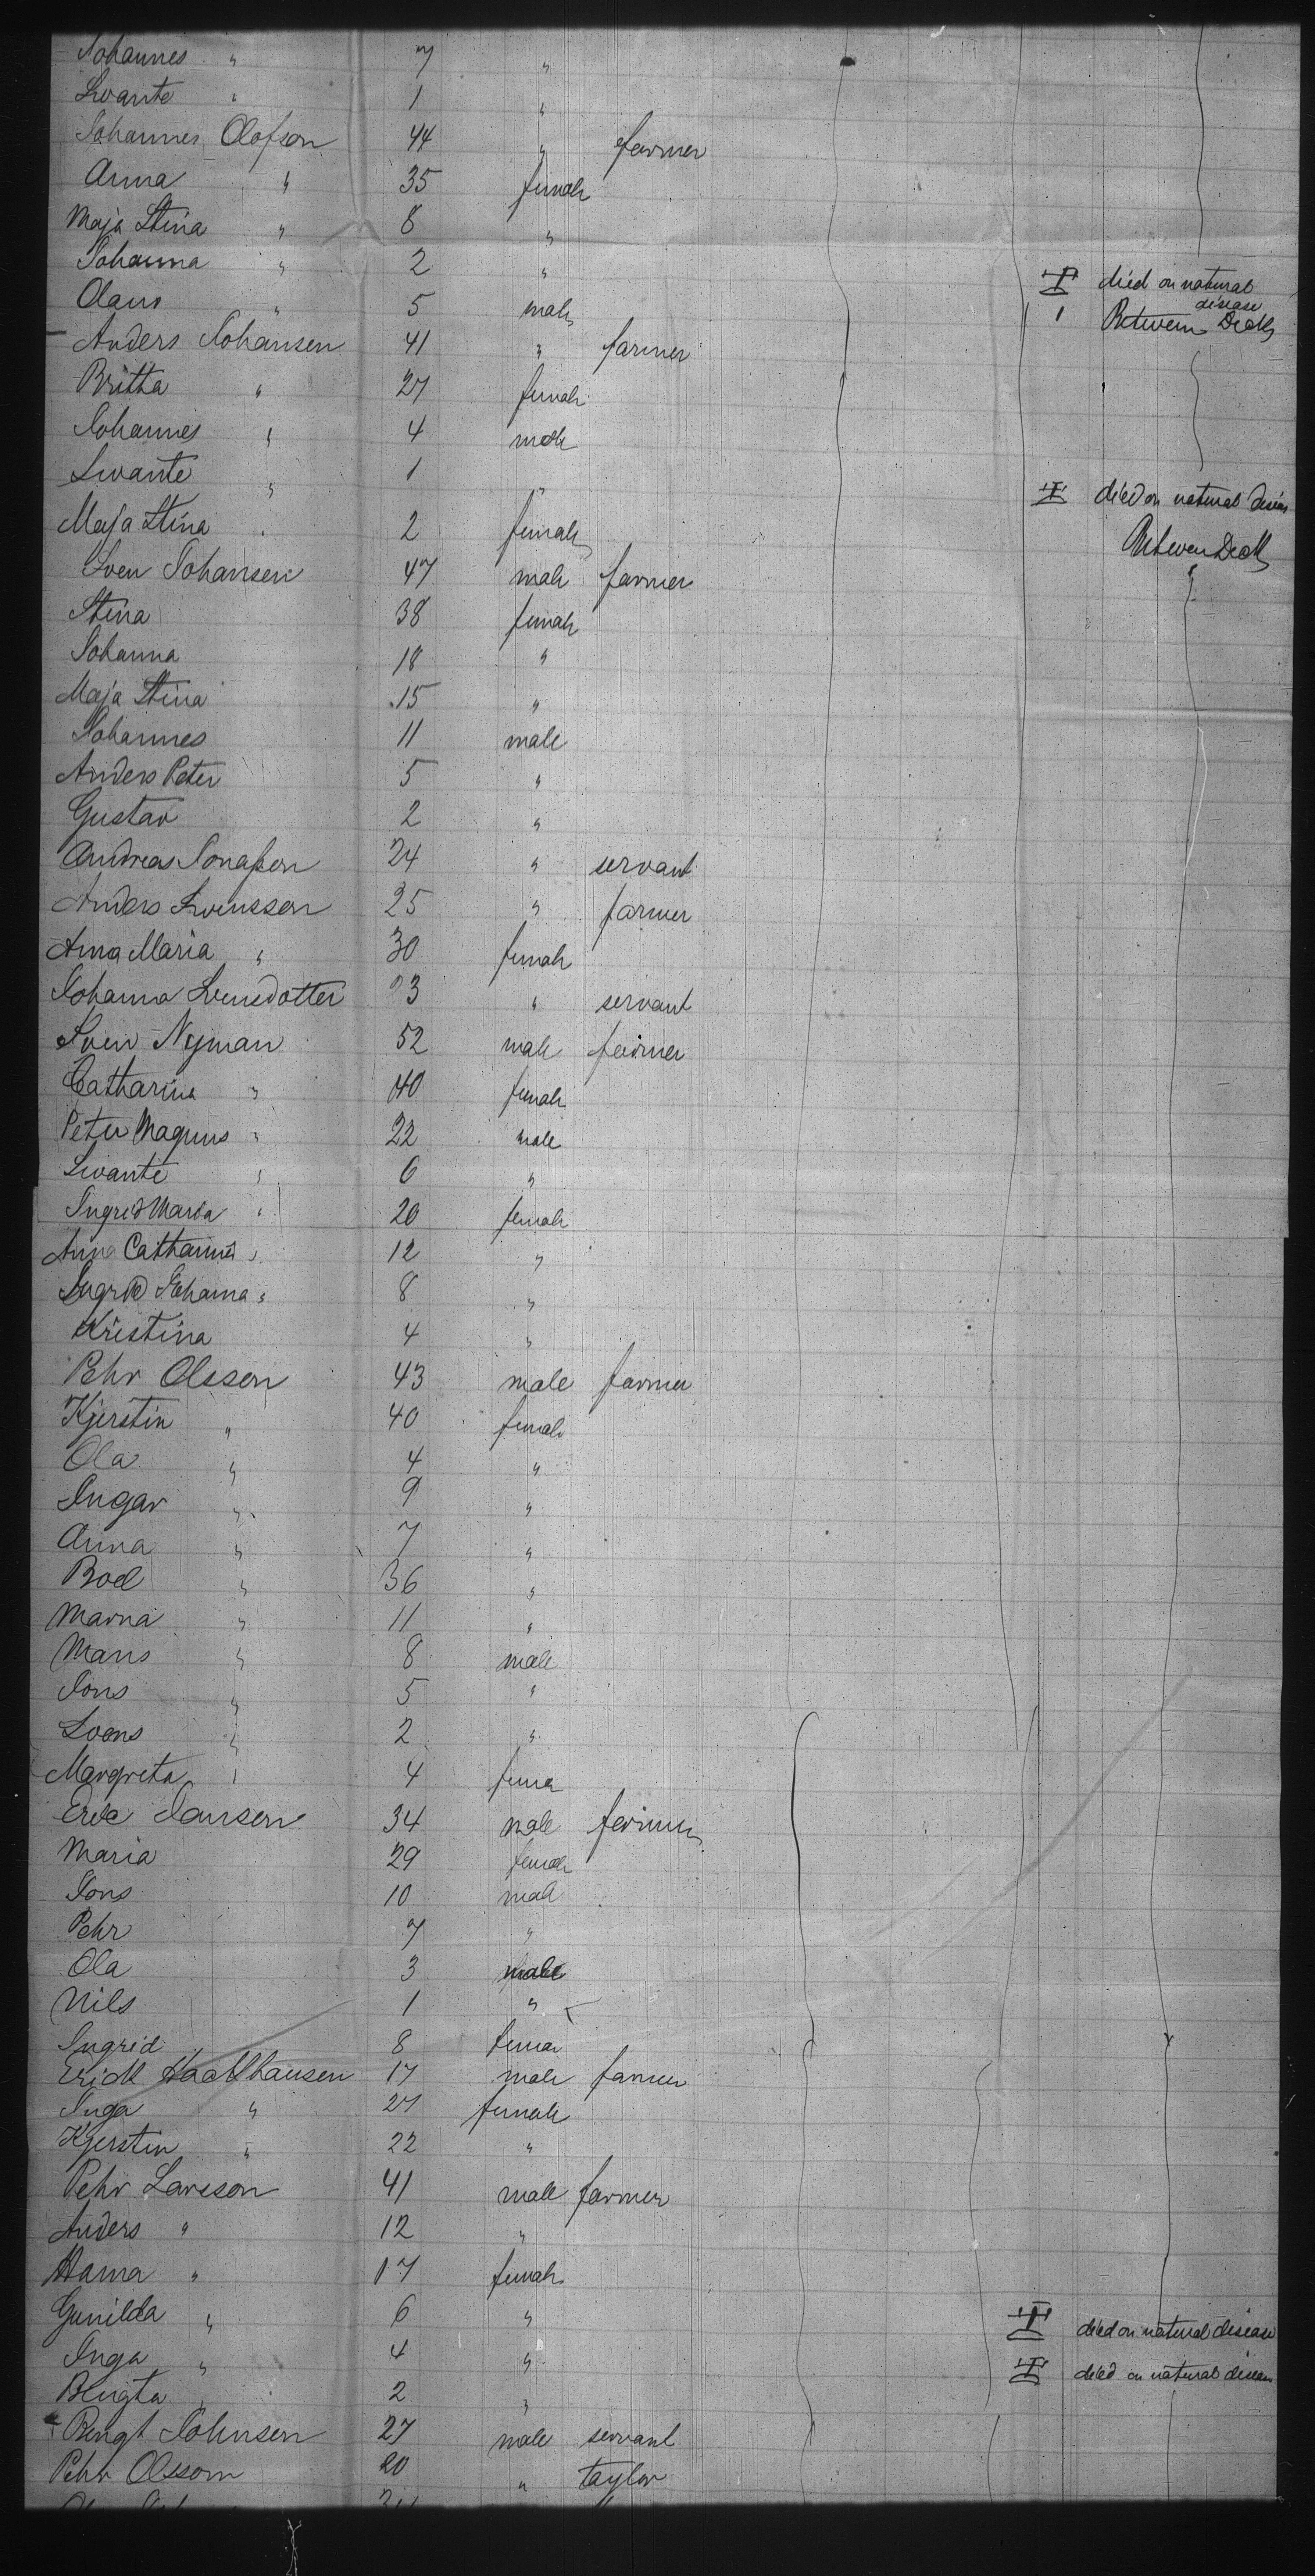 Johannes " 7 "
Swante " 1 "
Johannes Olofson 44 " farmer
Anna " 35 female
Maja Stina " 8 "
Johanna " 2 " died on natural disease
Olaus " 5 male Between Decks
Anders Johansen 41 " farmer
Britta " 27 female
Johannes " 4 male
Swante " 1 " died on natural
Maja Stina " 2 female Between Deck
Sven Johansen 47 male farmer
Stina 38 female
Johanna 18 "
Maja Stina 15 "
Johannes 11 male
Anders Peter 5 "
Gustav 2 "
Andreas Jonasson 24 " servant
Anders Svensson 25 " farmer
Anna Maria " 30 female
Johanna Svensdotter 23 " servant
Sven Nyman 52 male farmer
Catharina " 40 female
Peter Magnus " 22 male
Swante " 6 "
Ingrid Maria " 20 female
Anna Catharina " 12 "
Ingrid Johanna " 8 "
Kristina 4 "
Pehr Olsson 43 male farmer
Kjerstin " 40 female
Ola " 4 "
Ingar " 9 "
Anna " 7 "
Boel " 36 "
Marna " 11 "
Mans " 8 male
Jons " 5 "
Svens " 2 "
Margreta " 4 fema
Eric Jansen 34 male farmer
Maria 29 female
Jons 10 male
Pehr 7 "
Ola 3 male
Nils 1 "
Ingrid 8 femal
Erick 17 male farmer
Inga " 27 female
Kjerstin " 22 "
Pehr Larsson 41 male farmer
Anders " 12 "
Hanna " 17 female
Gunilda " 6 " died on natural disease
Inga " 4 " died on natural disease
Bengta " 2 "
Bengt Johnsen 27 male servant
Pehr Olssom 20 " taylor